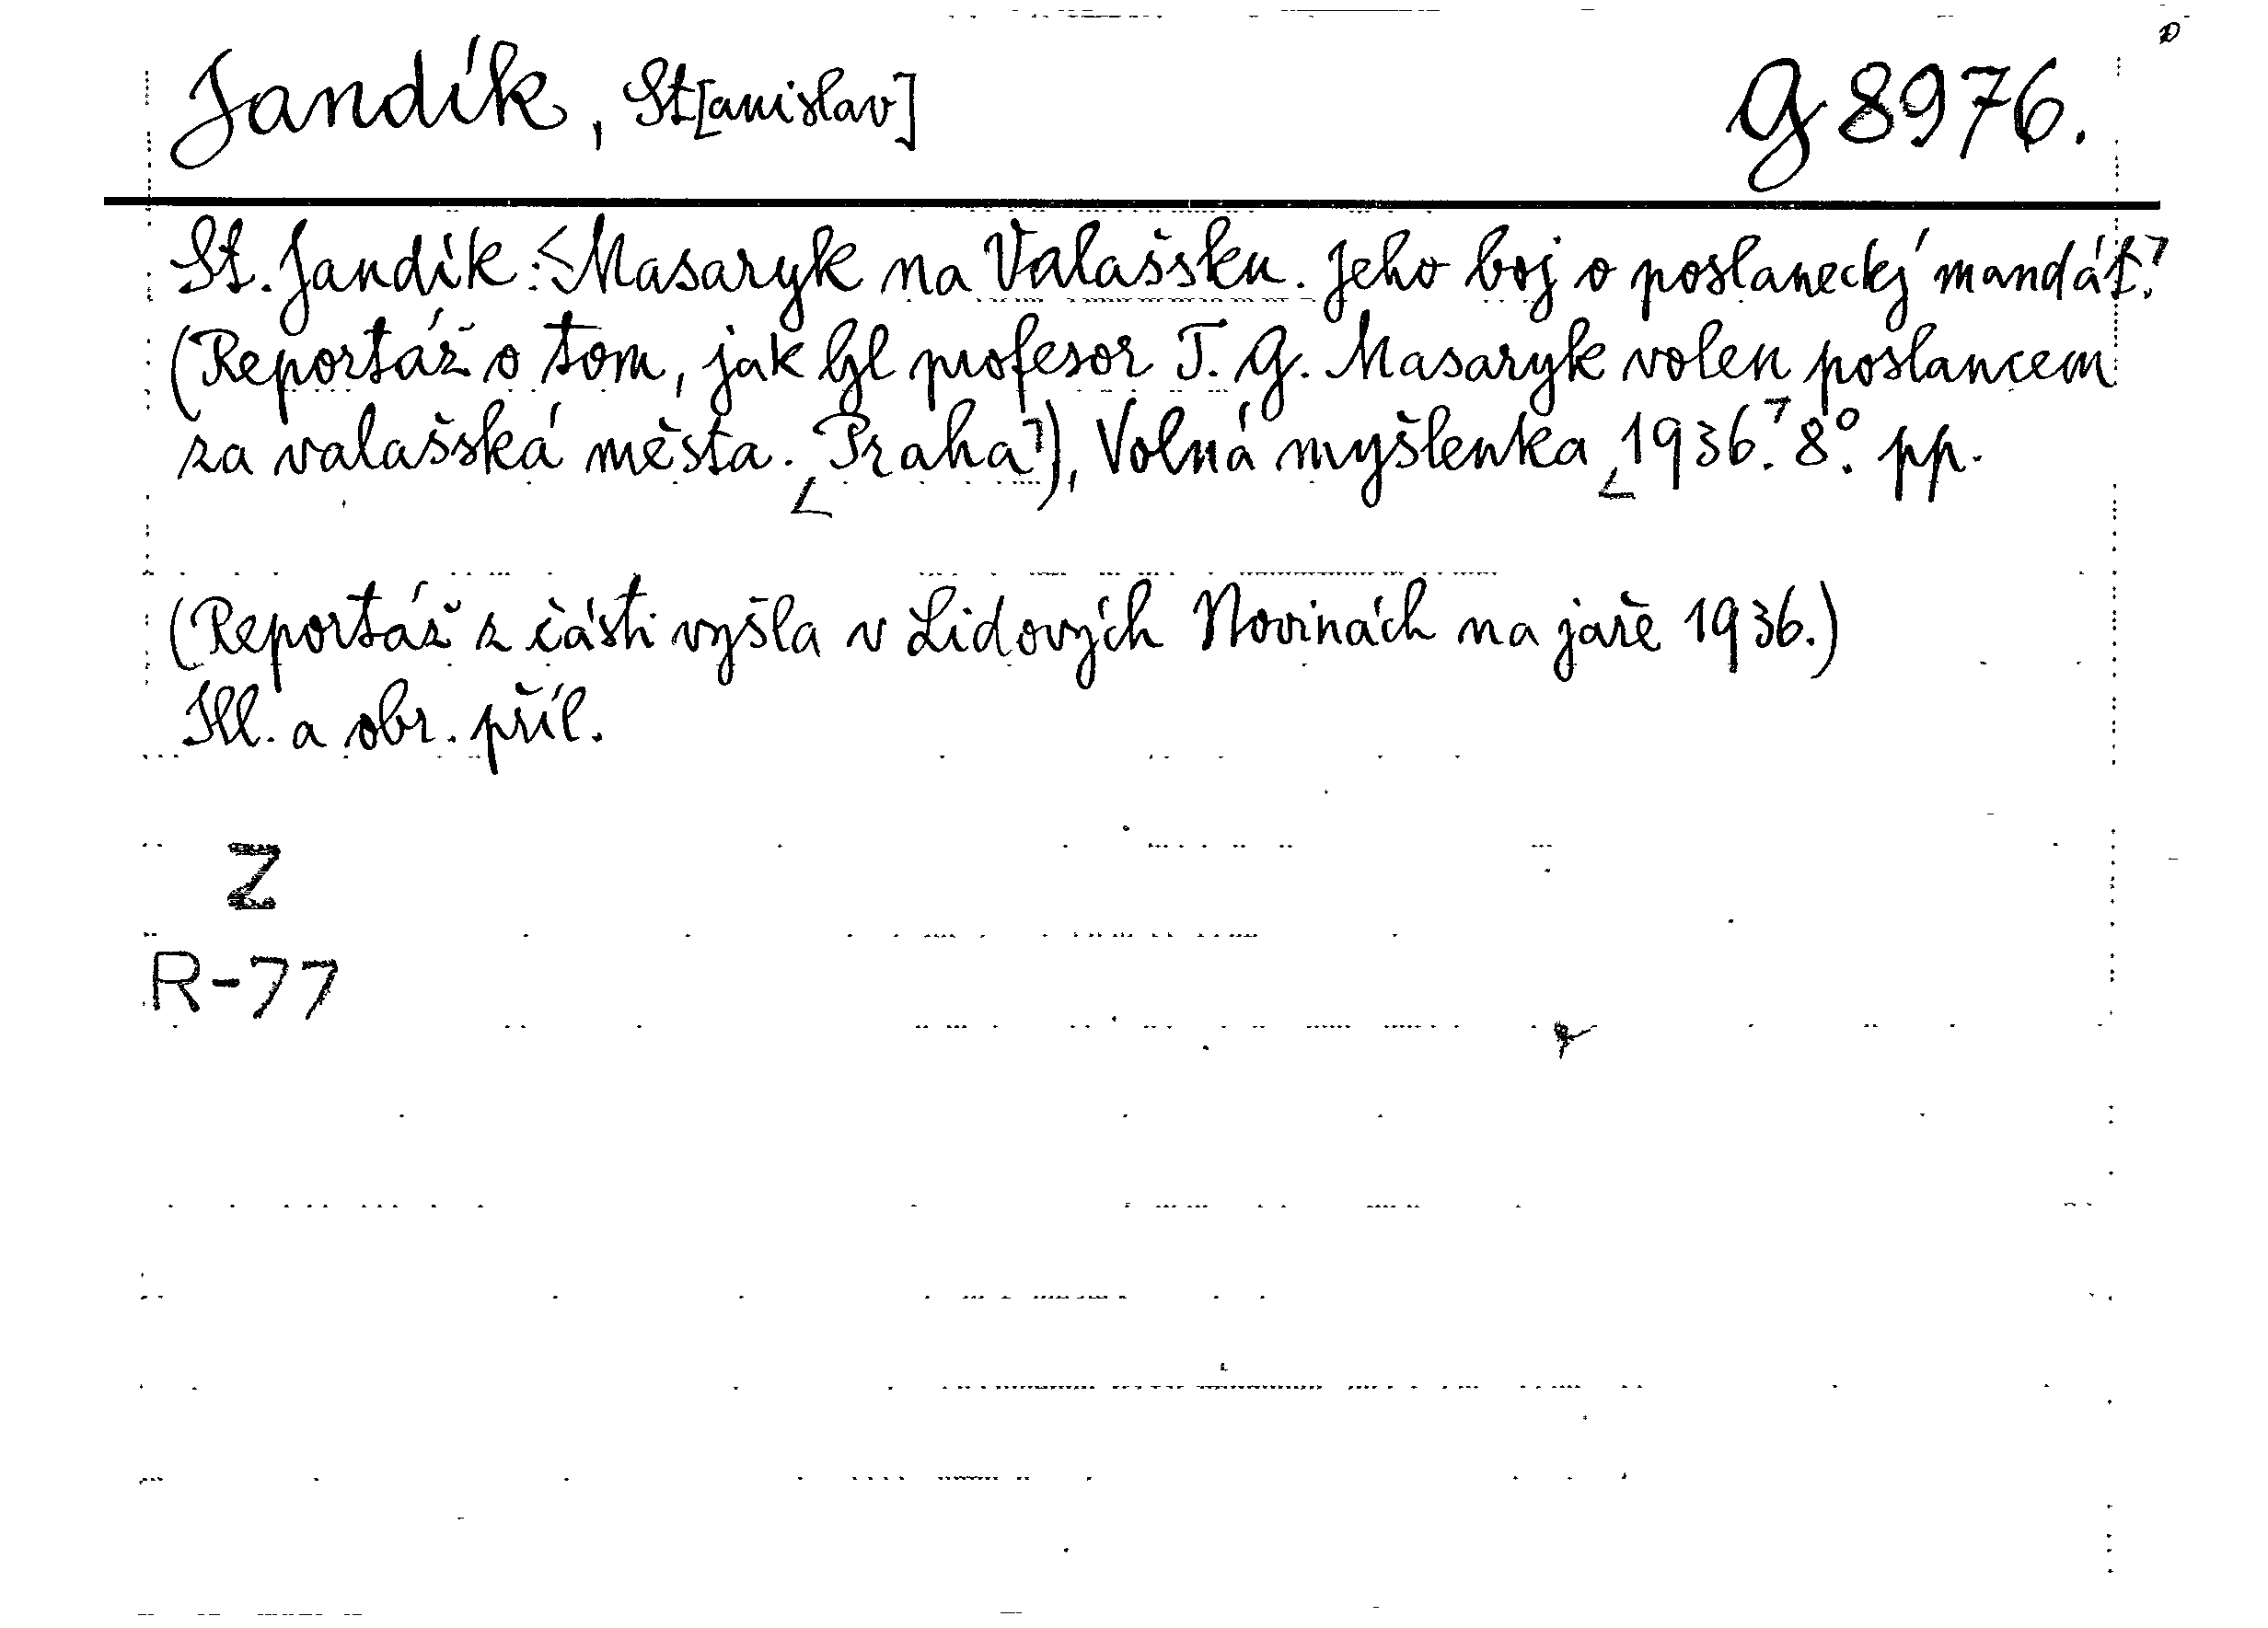 Jandík, St[anislav] G 8976.
St. Jandík: <Masaryk na Valašsku. Jeho boj o poslanecký mandát.>
(Reportáž o tom, jak byl profesor T. G. Masaryk volen poslancem
za valašská města. Praha), Volná myšlenka 1936. 8°. pp.
(Reportáž z části vyšla v Lidových Novinách na jaře 1936.)
Ill. a obr. příl.
Z
R-77